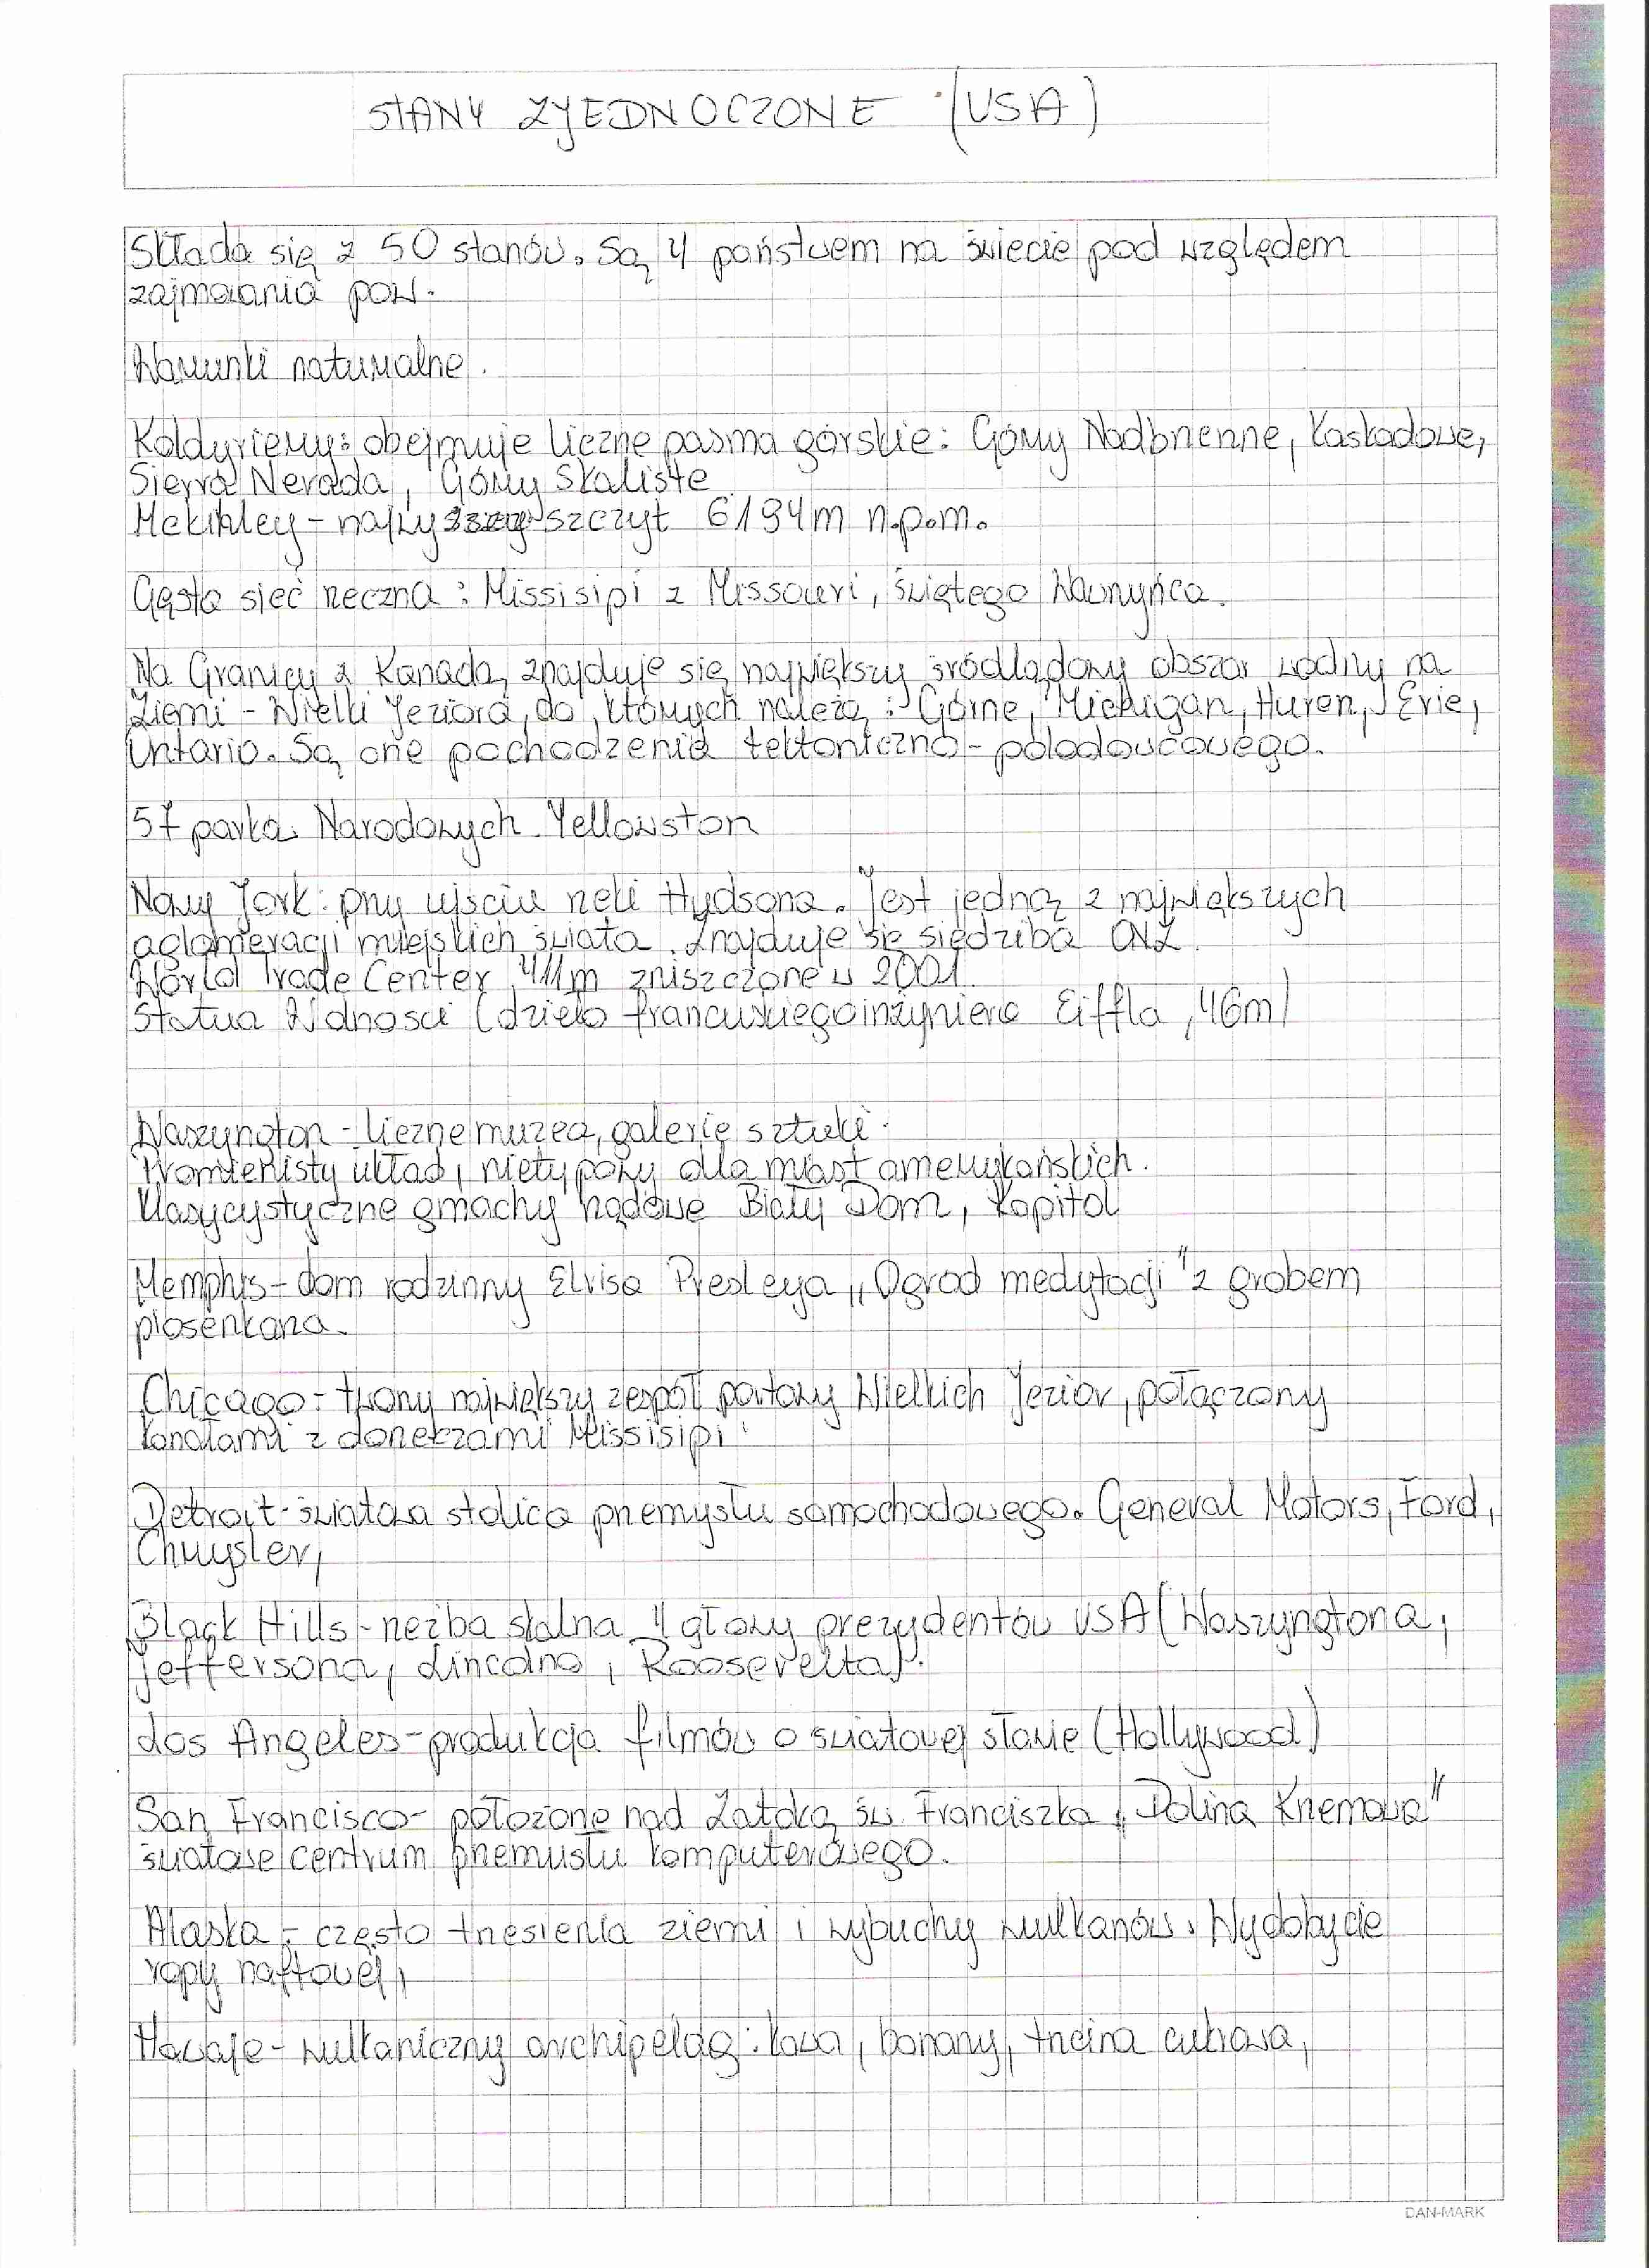 STANY ZJEDNOCZONE (USA)
Składa się z 50 stanów. Są 4 państwem na świecie pod względem
zajmowania pow.
Warunki naturalne.
Koldyriery: obejmuje liczne pasma górskie: Góry Nadbrzeżne, Kaskadowe,
Sierra Nevada, Góry Skaliste
McKinley - najwyższy szczyt 6194m n.p.m.
Gęsta sieć rzeczna: Missisipi z Missouri, świętego Wawrzyńca.
Na Granicy z Kanadą znajduje się największy śródlądowy obszar wodny na
Ziemi - Wielki Jeziora, do których należą: Górne, Michigan, Huren, Erie,
Ontario. Są one pochodzenia tektoniczno-polodowcowego.
57 parka Narodowych Yellowston
Nowy Jork: przy ujściu rzeki Hudsona. Jest jedną z największych
aglomeracji miejskich świata. Znajduje się siedziba ONZ.
World Trade Center 411m zniszczone w 2001.
Statua Wolności (dzieło francuskiego inżyniera Eiffla, 46m)
Waszyngton - liczne muzea, galerie sztuki.
Promienisty układ, nietypowy dla miast amerykańskich.
Klasycystyczne gmachy rządowe Biały Dom, Kapitol
Memphis - dom rodzinny Elvisa Presleya „Ogród medytacji" z grobem
piosenkarza.
Chicago - tworzy największy zespół portowy Wielkich Jezior, połączony
kanałami z dorzeczami Missisipi
Detroit - światowa stolica przemysłu samochodowego. General Motors, Ford,
Chrysler,
Black Hills - rzeźba skalna 4 głowy prezydentów USA (Waszyngtona,
Jeffersona, Lincolna, Roosevelta).
Los Angeles - produkcja filmów o światowej sławie (Hollywood)
San Francisco - położone nad Zatoką św. Franciszka „Dolina Krzemowa"
światowe centrum przemusłu komputerowego.
Alaska - często trzęsienia ziemi i wybuchy wulkanów. Wydobycie
ropy naftowej,
Hawaje - wulkaniczny archipelag: kawa, banany, trzcina cukrowa,
DAN-MARK